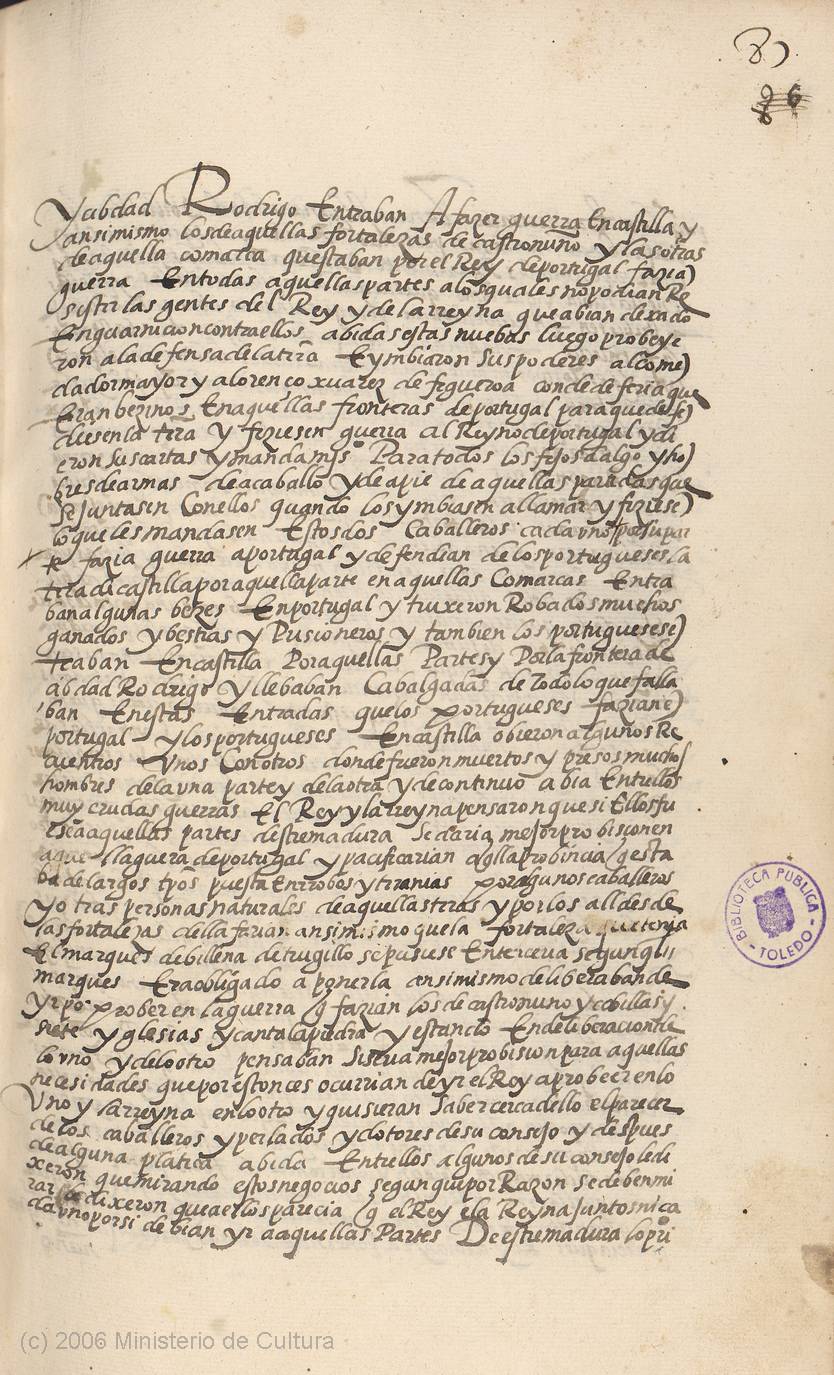 8)
86
y cibdad Rodrigo Entraban A fazer guerra En castilla y
ansimismo los de aquellas fortalezas de castronuño y las otras
de aquella comarca questaban por el Rey de portugal fazia)
guerra En todas aquellas partes a los quales no podian Re
sistir las gentes del Rey y de la rreyna que abian dexado
En guarnicion contra ellos abidas estas nuebas luego probeye
ron a la defensa de la tirã Eymbiaron sus poderes al come)
dador mayor y a lorenço xuarez de figueroa conde de feria que
Eran bezinos En aquellas fronteras de portugal para que defe)
diesen la tira y fiziesen guerra al Reyno de portugal y di
eron sus cartas y mandamjs Para todos los fijos dalgo y ho)
bres de armas de a caballo y de a pie de aquellas partidas que
se juntasen Con ellos quando los ymbiasen a llamar y fiziese)
lo que les mandasen Estos dos Caballeros cada vno por su par
te fazia guerra a portugal y defendian de los portugueses la
tira di castilla por aquella parte en aquellas Comarcas Entra
ban algunas bezes En portugal y truxeron Robados muchos
ganados y bestias y Prisioneros y tambien los portugueses e)
traban En castilla Por aquellas Partes y Por la frontera de
cibdad Rodrigo y llebaban Cabalgadas de todo lo que falla
ban En estas Entradas que los portugueses fazian e)
portugal y los portugueses En castilla obieron algunos Re
cuentros Vnos Con otros donde fueron muertos y presos muchos
hombres de la vna parte y de la otra y de continuo abia Entrellos
muy crudas guerras El Rey y la rreyna pensaron que si Ellos fu
esen a aquellas partes destremadura se daria mejor probision en
aque lla guera de portugal y pacificarian aqlla probincia q esta
ba de largos tpõs puesta En robos y tiranias por algunos caballeros
y otras personas naturales de aquellas tiras y por los alldes de
las fortalezas della farian ansimismo que la fortaleza que tenja
El marques de billena de trugillo se pusiese En terceria segun qll
marques Era obligado a ponerla ansimismo deliberaban de
yr po prober en la guerra q fazian los de castronuno y cobillas y
siete yglesias y cantalapiedra y estando En deliberacion de
lo vno y de lo otro pensaban si seria mejor probision para aquellas
necesidades que por estonces ocurrian de yr el Rey a probeer en lo
Vno y la rreyna en lo otro y quisieran saber cerca dello el parecer
de los caballeros y perlados y dotores de su consejo y despues
de alguna platica abida Entrellos algunos de su consejo le di
xeron que mirando estos negocios segun que por Razon se deben mi
rar le dixeron que a ellos parecia q el Rey e la Reyna juntos ni ca
da vno por si debian yr a aquellas Partes De estremadura lo pri
BIBLIOTECA PUBLICA - TOLEDO -
(c) 2006 Ministerio de Cultura